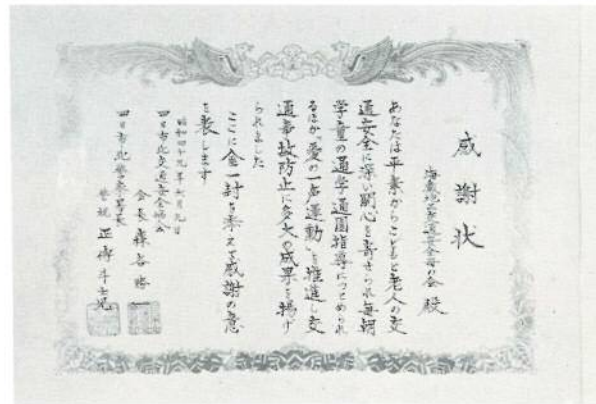 感謝状
海蔵地区交通安全母の会 殿
あなたは平素からこどもと老人の交
通安全に深い関心を寄せられ毎朝
学童の通学通園指導につとめられ
るほか「愛の一声運動」を推進し交
通事故防止に多大の成果を揚げ
られました
ここに金一封を添えて感謝の意
を表します
昭和四十九年七月九日
四日市北交通安全協会
会長 森 勝
四日市北警察署長
警視